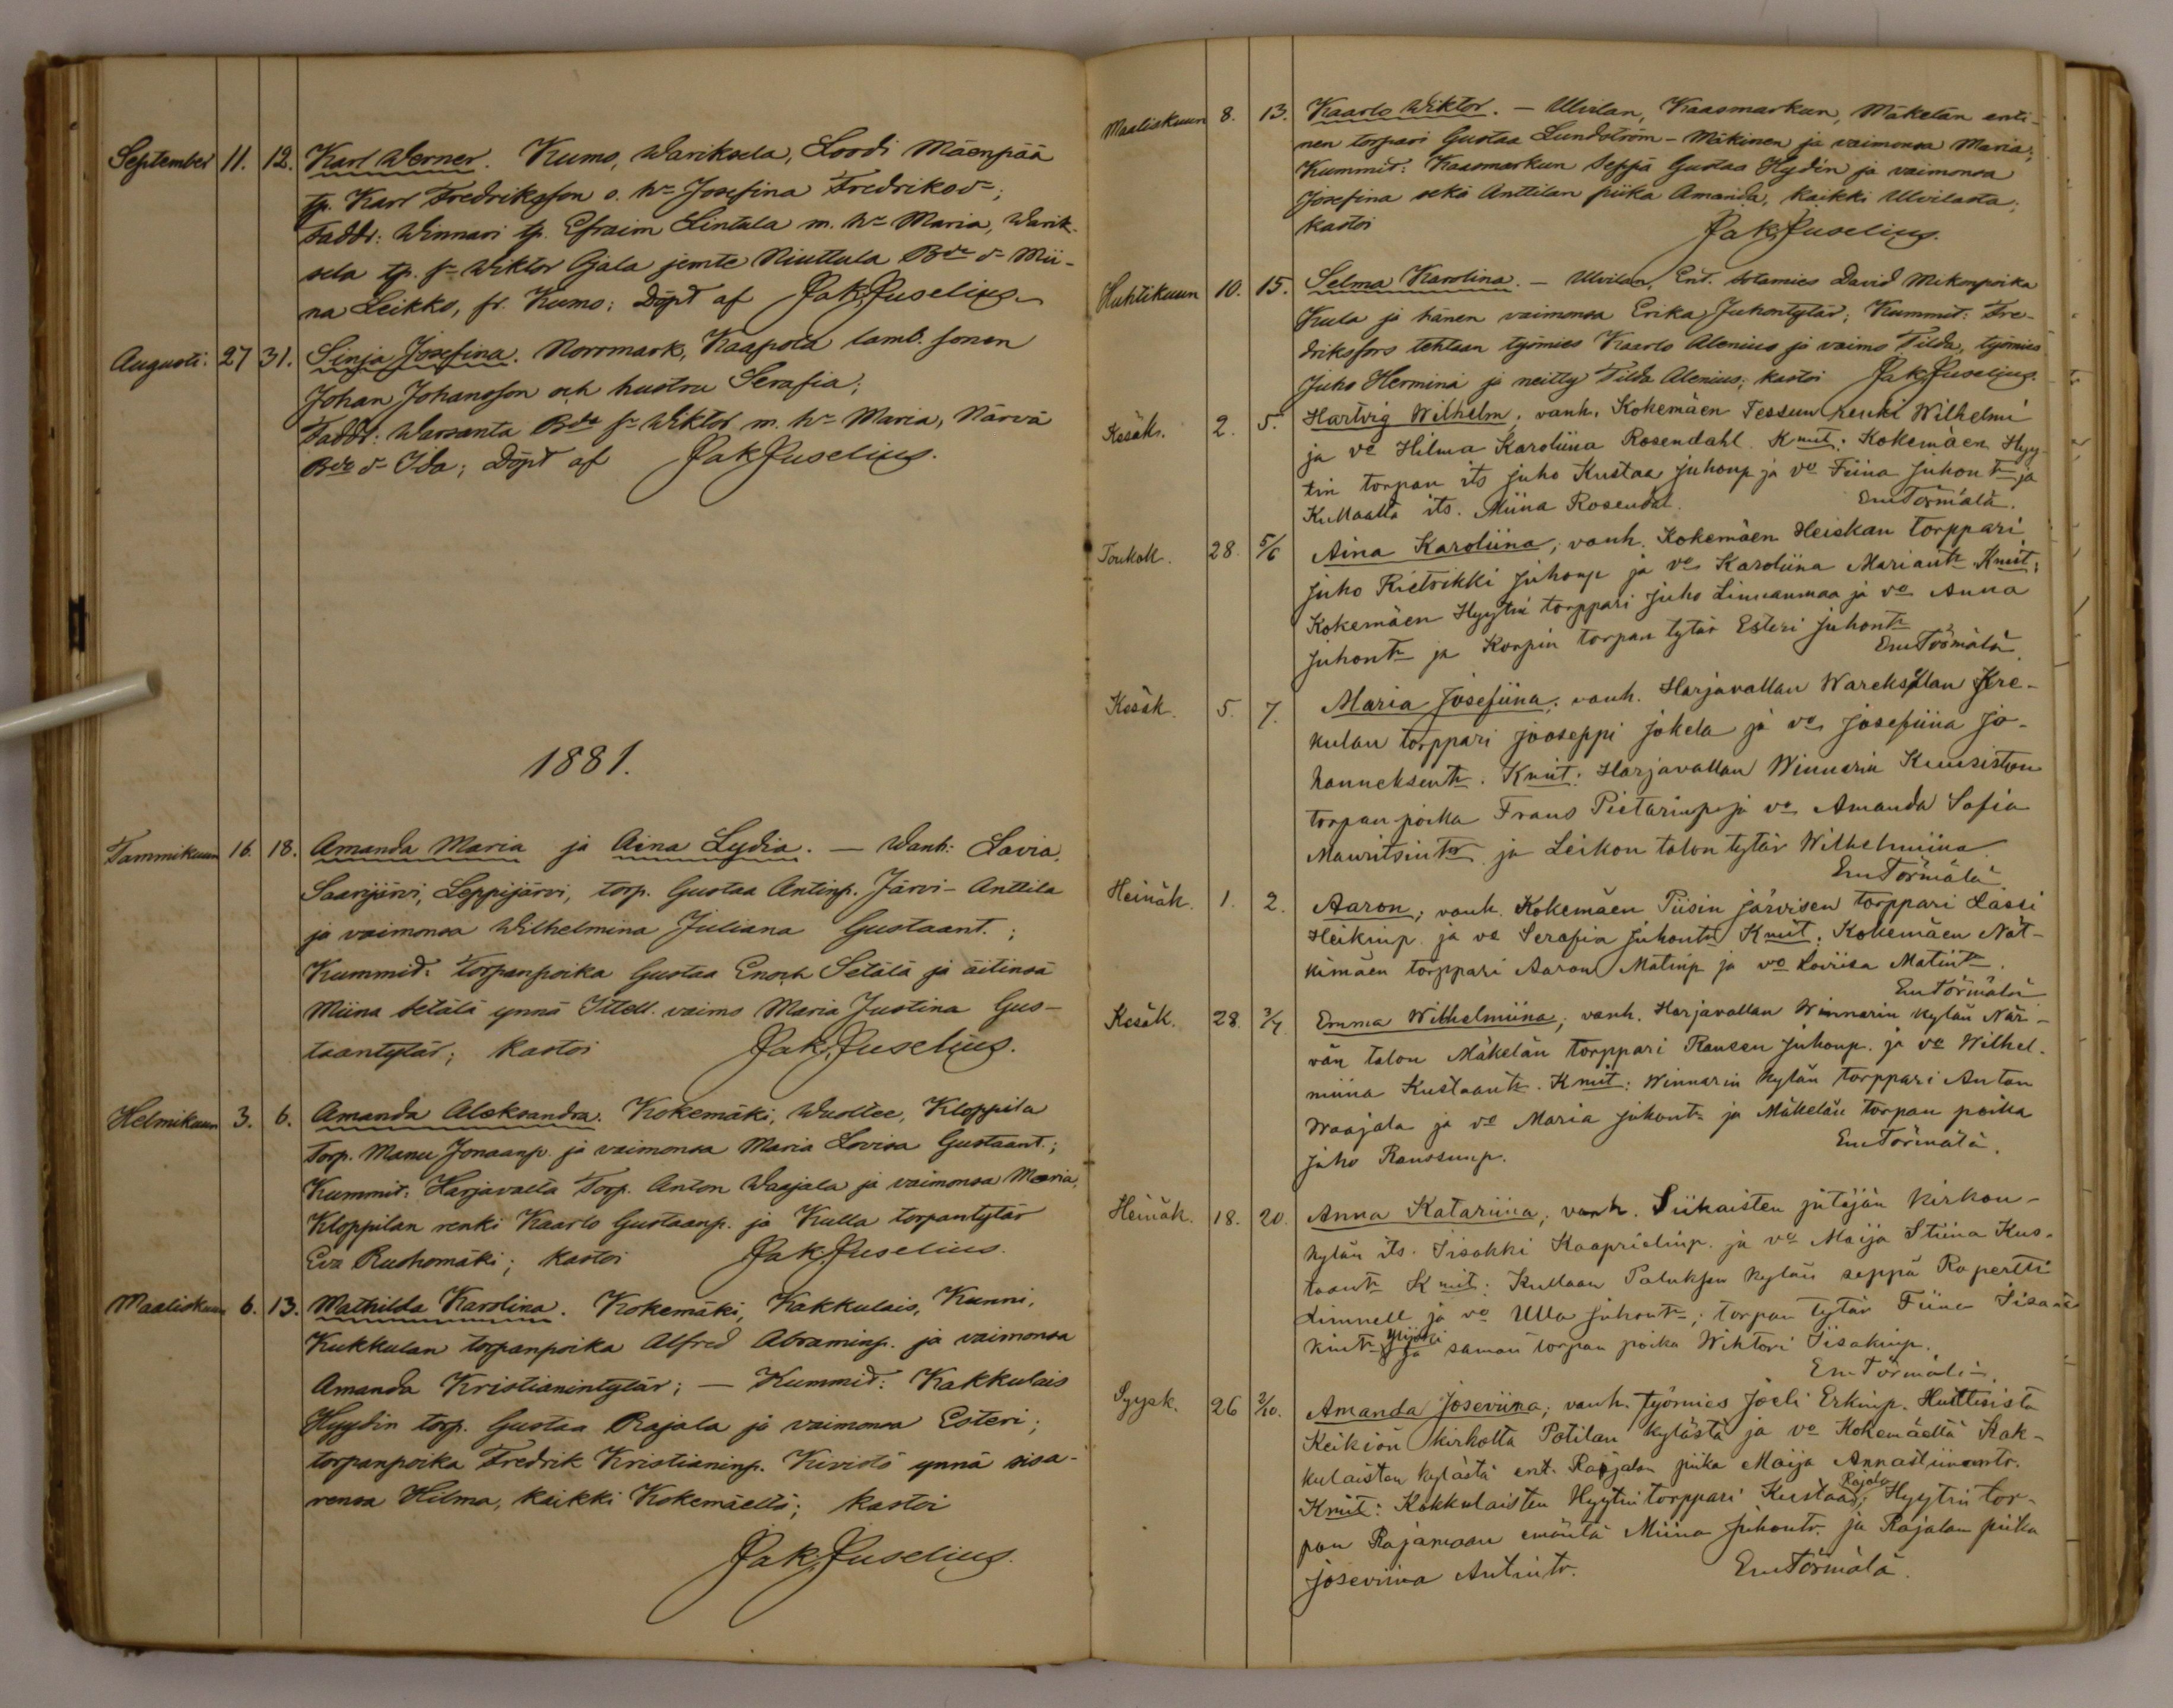 September 11. 12. Karl Werner. Kumo, Wariksela, Loodi Mäenpää
tp. Karl Fredriksson o. hu Josefina Fredriksdr;
Faddr: Winnari tp. Efraim Lintala m. hu Maria, Warik-
sela tp. sn Wiktor Ojala jemte Niuttula Bde dr Mii-
na Leikko, fr. Kumo; Döpt af Jak. Juselius.
Augusti. 27 31. Sinja Josefina. Norrmark, Kaapola lamb. sonen
Johan Johansson och hustru Serafia;
Faddr: Warsanta Bde sn Wiktor m. hu Maria, Närvä
Bde dr Ida; Döpt af Jak Juselius.
1881.
Tammikuun 16. 18. Amanda Maria ja Aina Lydia. — Wanh: Lavia,
Saarijärvi, Leppijärvi, torp. Gustaa Antinp. Järvi-Anttila
ja vaimonsa Wilhelmina Juliana Gustaant.;
Kummit: Torpanpoika Gustaa Enoch Setälä ja äitinsä
Miina Setälä ynnä Ittell. vaimo Maria Justina Gus-
taantytär; kastoi Jak. Juselius.
Helmikuun 3. 6. Amanda Aleksandra. Kokemäki, Wuoltee, Kloppila
Torp. Manu Jonaanp. ja vaimonsa Maria Lovisa Gustaant.;
Kummit: Harjavalta Torp. Anton Waajala ja vaimonsa Maria,
Kloppilan renki Kaarlo Gustaanp. ja Kulla torpantytär
Eva Ruohomäki; kastoi Jak. Juselius.
Maaliskuun 6. 13. Mathilda Karolina. Kokemäki, Kakkulais, Kunni,
Kukkulan torpanpoika Alfred Abraminp. ja vaimonsa
Amanda Kristianintytär; — Kummit: Kakkulais
Hyydin torp. Gustaa Rajala ja vaimonsa Esteri;
torpanpoika Fredrik Kristianinp. Kivistö ynnä sisa-
rensa Hilma, kaikki Kokemäeltä; kastoi
Jak. Juselius.
Maaliskuun 8. 13. Kaarlo Wiktor. — Ulvilan, Kaasmarkun, Mäkelän enti-
nen torpari Gustaa Lundström-Mäkinen ja vaimonsa Maria;
Kummit: Kaasmarkun Seppä Gustaa Hydén ja vaimonsa
Josefina sekä Anttilan piika Amanda, kaikki Ulvilasta;
kastoi Jak. Juselius.
Huhtikuun 10. 15. Selma Karolina. — Ulvilan, Ent. Sotamies David Mikonpoika
Kula ja hänen vaimonsa Erika Juhontytär; Kummit: Fre-
driksfors tehtaan työmies Kaarlo Alenius ja vaimo Tilda, työmies
Juho Hermina ja neitty Tilda Alenius; kastoi Jak. Juselius.
Kesäk. 2. 5. Hartvig Wilhelm, vanh. Kokemäen Tessun renki Wilhelmi
ja vo Hilma Karoliina Rosendahl. Kmit: Kokemäen Hyy-
tin torpan its Juho Kustaa Juhonp ja vo Fiina Juhontr ja
Kullaalta its. Miina Rosendal. Em Törmälä.
Toukok. 28. 5/6 Aina Karoliina; vanh. Kokemäen Heiskan torppari
Juho Rietrikki Juhonp ja vo Karoliina Mariantr Kmit:
Kokemäen Hyytin torppari Juho Linnanmaa ja vo Anna
Juhontr ja Korpin torpan tytär Esteri Juhontr
Em Törmälä.
Kesäk. 5. 7. Maria Josefiina; vanh. Harjavallan Wareksylan Kre-
kulan torppari Jooseppi Jokela ja vo Josefiina Jo-
hanneksentr. Kmit: Harjavallan Winnarin Kuusiston
torpan poika Frans Pietarinp ja vo Amanda Sofia
Mauritsintr ja Leikon talon tytär Wilhelmiina
Em Törmälä.
Heinäk. 1. 2. Aaron; vanh. Kokemäen Piisin järvisen torppari Lassi
Heikinp. ja vo Serafia Juhontr Kmit: Kokemäen Nät-
kimäen torppari Aaron Matinp ja vo Loviisa Matintr.
Em Törmälä
Kesäk. 28. 3/7. Emma Wilhelmiina; vanh. Harjavallan Winnarin kylän När-
vän talon Mäkelän torppari Ransen Juhonp. ja vo Wilhel-
miina Kustaantr. Kmit: Winnarin kylän torppari Anton
Waajala ja vo Maria Juhontr ja Mäkelän torpan poika
Juho Ranssunp. Em Törmälä.
Heinäk. 18. 20. Anna Katariina; vanh. Siikaisten pitäjän kirkon-
kylän its. Iisakki Kaaprielinp. ja vo Maija Stiina Kus-
taantr Kmit: Kullaan Paluksen kylän seppä Ropertti
Limnell ja vo Ulla Juhontr; torpan tytär Fiina Iisa-
kintr Ylijoki ja saman torpan poika Wihtori Iisakinp.
Em Törmälä.
Syysk. 26 2/10. Amanda Joseviina; vanh. Työmies Joeli Erkinp. Huittisista
Keikiön kirkolta Potilan kylästä ja vo Kokemäeltä Kak-
kulaisten kylästä ent. Rajalan piika Maija Annastiinantr.
Kmit: Kakkulaisten Hyytin torppari Kustaa Rajala; Hyytin tor-
pan Rajamaan emäntä Miina Juhontr. ja Rajalan piika
Joseviina Antintr. Em Törmälä.